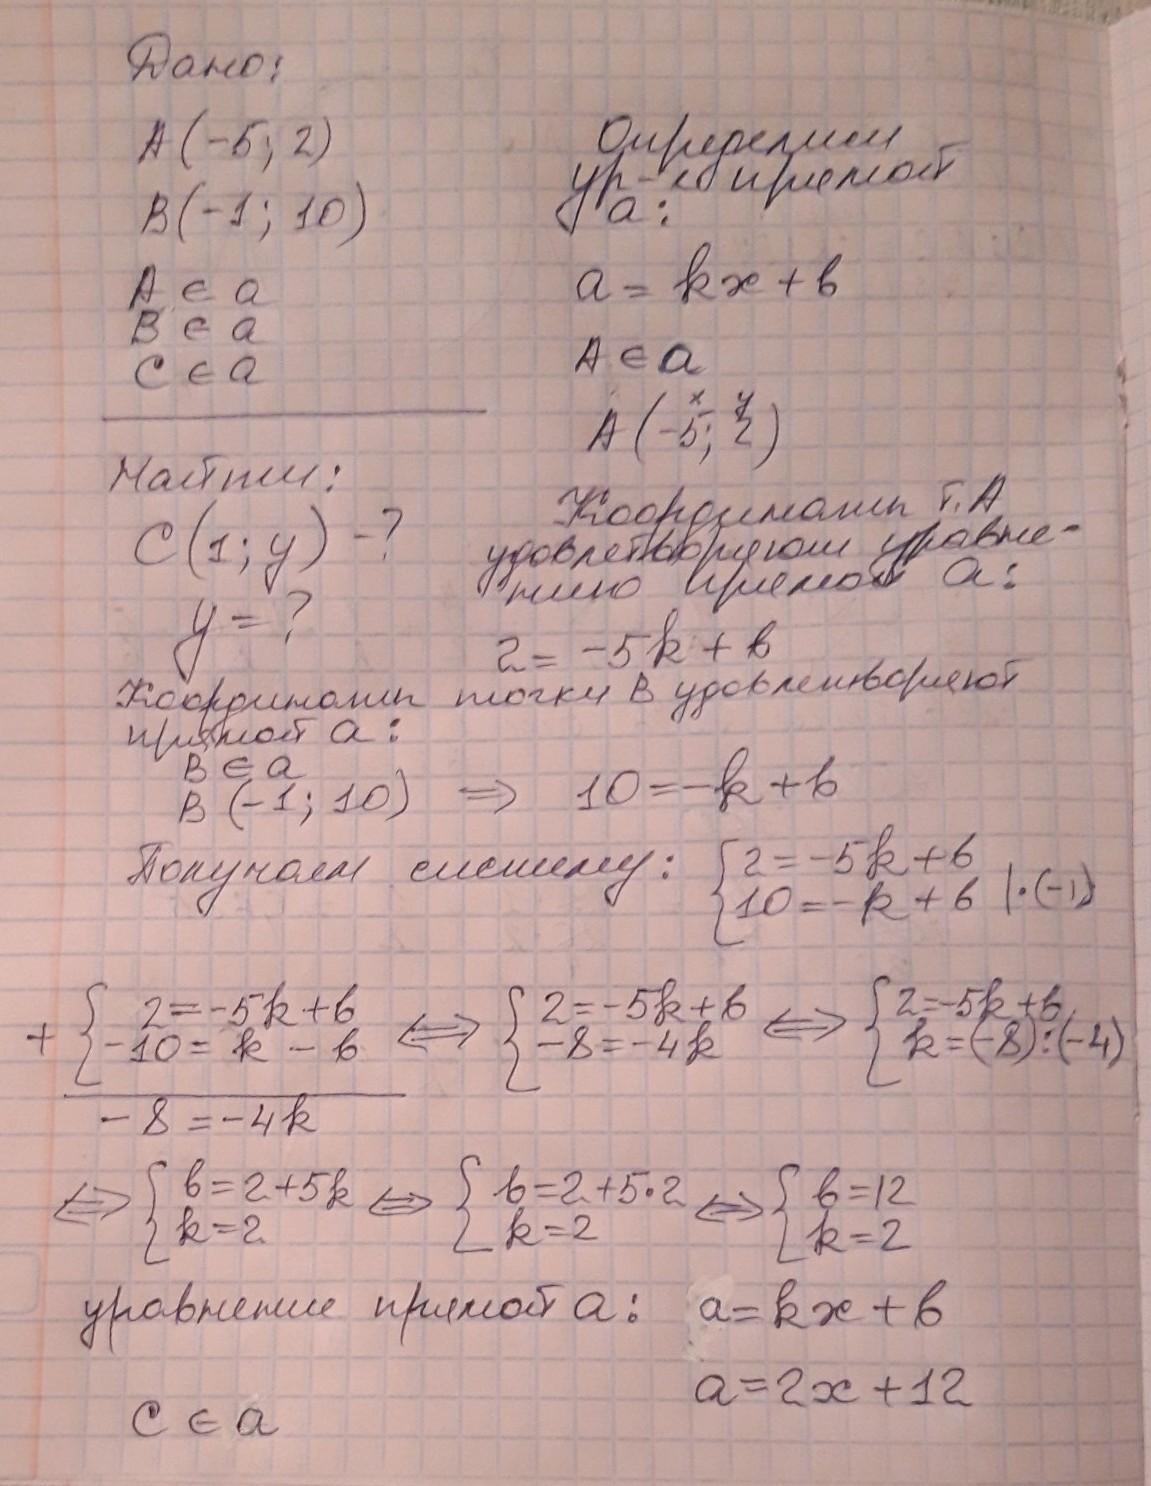 Дано:
A(-5; 2)
B(-1; 10)
A ∈ a
B ∈ a
C ∈ a
Найти:
C(1; y) -?
y = ?
Определим
ур-е прямой
a:
a = kx + b
A ∈ a
x y
A(-5; 2)
Координаты т. A
удовлетворяют уравне-
нию прямой a:
2 = -5k + b
Координаты точки B удовлетворяют
прямой a:
B ∈ a
B (-1; 10) ⇒ 10 = -k + b
Получаем систему: { 2 = -5k + b
10 = -k + b |·(-1)
+ { 2 = -5k + b ⇔ { 2 = -5k + b ⇔ { 2 = -5k + b
-10 = k - b -8 = -4k k = (-8):(-4)
-8 = -4k
⇔ { b = 2 + 5k ⇔ { b = 2 + 5·2 ⇔ { b = 12
k = 2 k = 2 k = 2
уравнение прямой a: a = kx + b
a = 2x + 12
C ∈ a